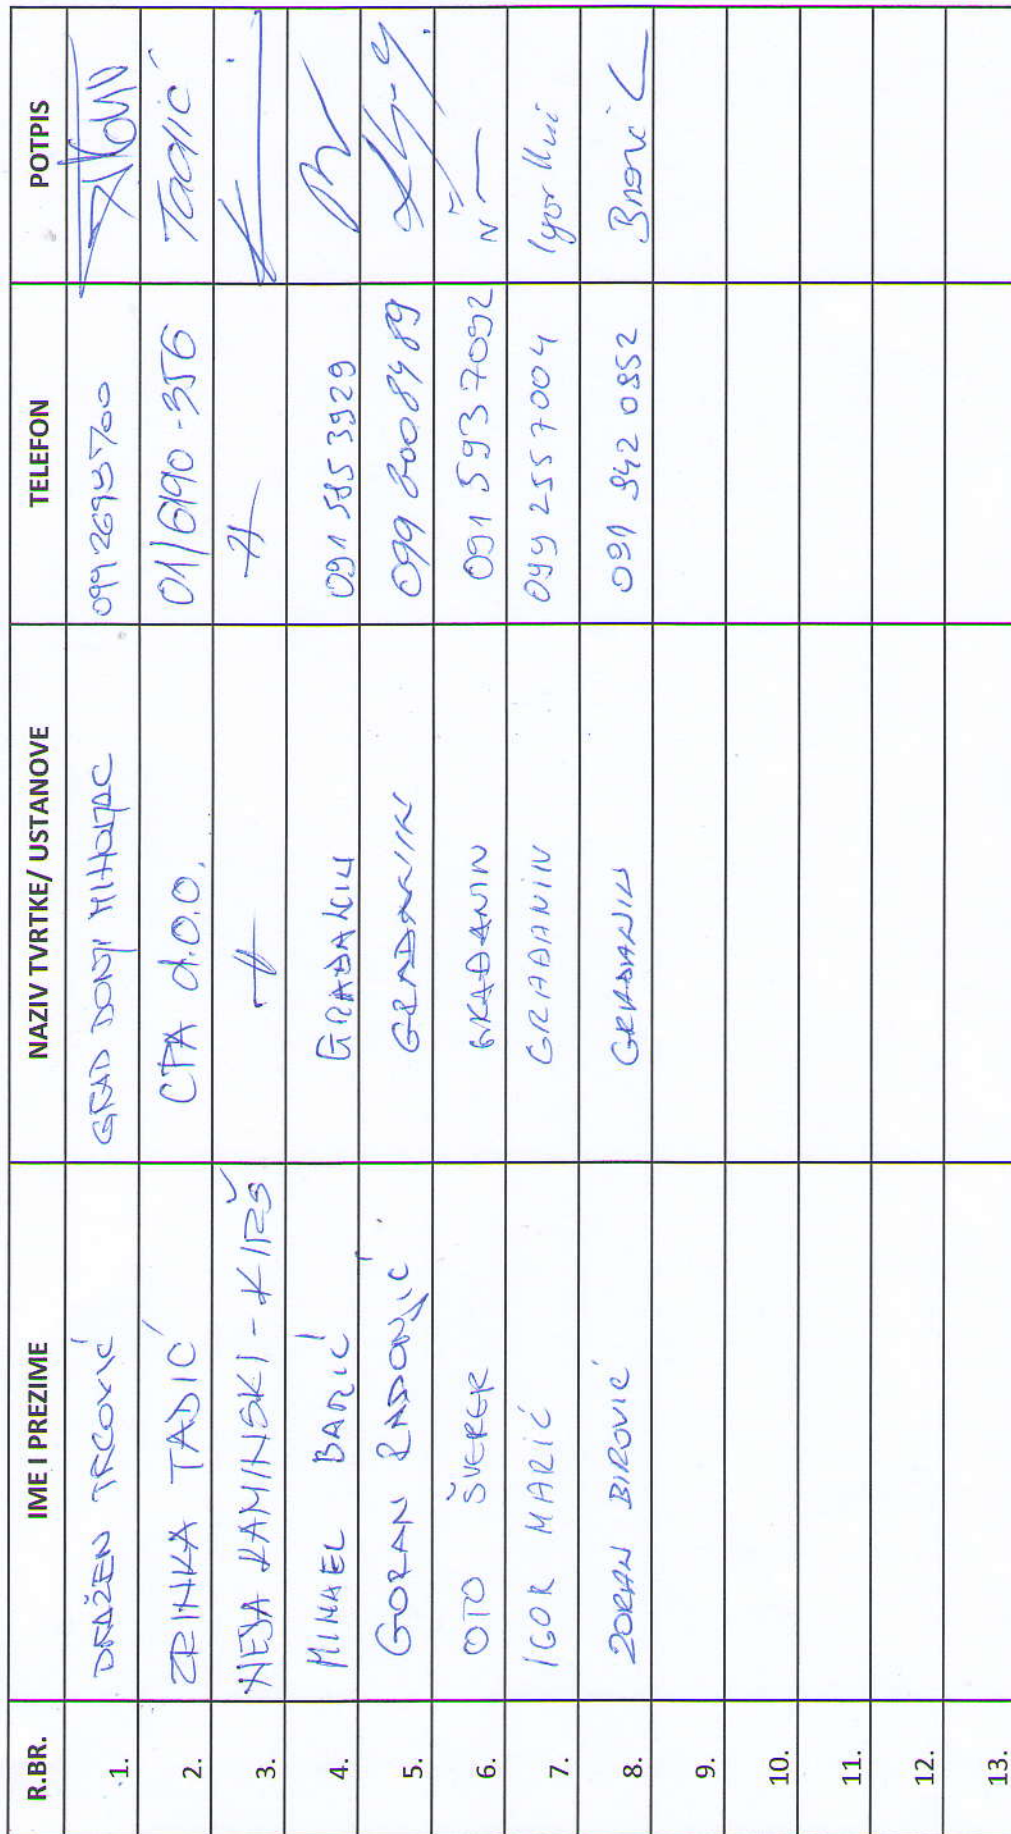 R.BR. IME I PREZIME NAZIV TVRTKE/ USTANOVE TELEFON POTPIS
1. DRAŽEN TRCOVIĆ GRAD DONJI MIHOLJAC
2. ZRINKA TADIĆ CPA d.o.o. 01/6190-356 Tadić
3. NEJA KAMINSKI-KIRŠ
4. MIHAEL BARIĆ GRAĐANIN 091 585 3929
5. GORAN RADONJIĆ GRAĐANIN 099 8008489
6. OTO ŠVERER GRAĐANIN 091 593 7092
7. IGOR MARIĆ GRAĐANIN 099 255 7004 Igor
8. ZORAN BIROVIĆ GRAĐANIN 091 942 0852
9.
10.
11.
12.
13.